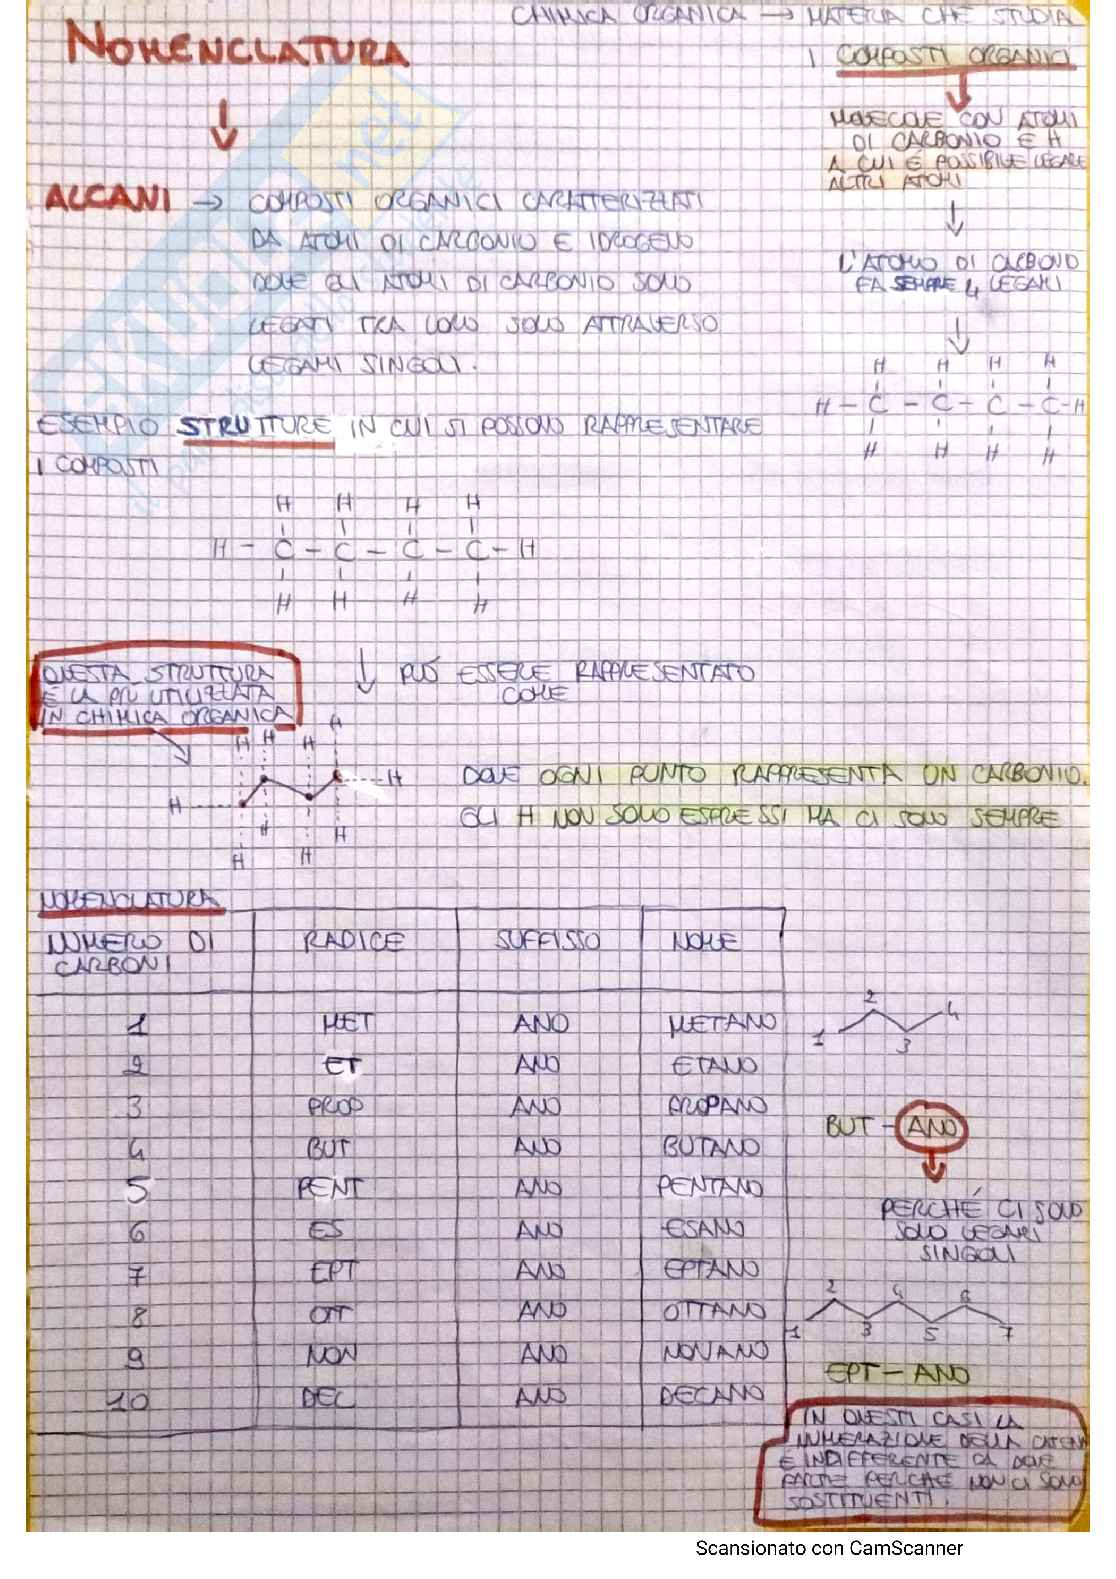 CHIMICA ORGANICA → MATERIA CHE STUDIA
I COMPOSTI ORGANICI
NOMENCLATURA
MOLECOLE CON ATOMI
DI CARBONIO E H
A CUI È POSSIBILE LEGARE
ALTRI ATOMI
ALCANI → COMPOSTI ORGANICI CARATTERIZZATI
DA ATOMI DI CARBONIO E IDROGENO
DOVE GLI ATOMI DI CARBONIO SONO
LEGATI TRA LORO SOLO ATTRAVERSO
LEGAMI SINGOLI.
L'ATOMO DI CARBONIO
FA SEMPRE 4 LEGAMI
H H H H
H - C - C - C - C - H
H H H H
ESEMPIO STRUTTURE IN CUI SI POSSONO RAPPRESENTARE
I COMPOSTI
H H H H
H - C - C - C - C - H
H H H H
QUESTA STRUTTURA
È LA PIÙ UTILIZZATA
IN CHIMICA ORGANICA
↓ PUÒ ESSERE RAPPRESENTATO
COME
H H H H
H H
H H H H
DOVE OGNI PUNTO RAPPRESENTA UN CARBONIO.
GLI H NON SONO ESPRESSI MA CI SONO SEMPRE
NOMENCLATURA
NUMERO DI
CARBONI
RADICE SUFFISSO NOME
1 MET ANO METANO
2 ET ANO ETANO
3 PROP ANO PROPANO
4 BUT ANO BUTANO
5 PENT ANO PENTANO
6 ES ANO ESANO
7 EPT ANO EPTANO
8 OTT ANO OTTANO
9 NON ANO NONANO
10 DEC ANO DECANO
1 2 3 4
BUT - ANO
PERCHÉ CI SONO
SOLO LEGAMI
SINGOLI
1 2 3 4 5 6 7
EPT - ANO
IN QUESTI CASI LA
NUMERAZIONE DELLA CATENA
È INDIFFERENTE DA DOVE
PARTE PERCHÉ NON CI SONO
SOSTITUENTI.
Scansionato con CamScanner